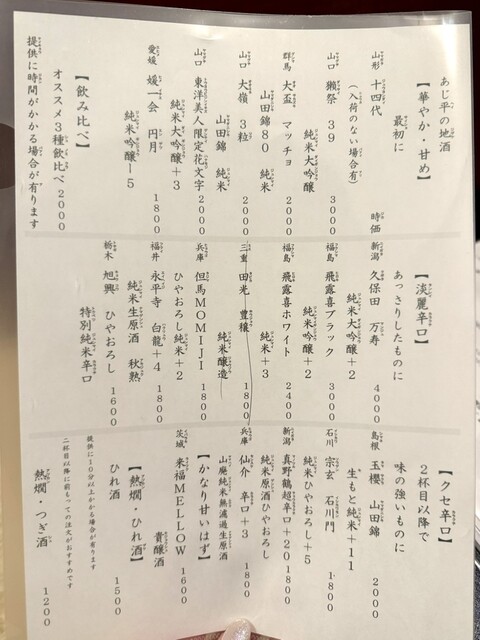 あじ平の地酒
【華やか・甘め】
最初に
山形 十四代 時価
(入荷のない場合有)
山口 獺祭 39 3000
純米大吟醸
群馬 大盃 マッチョ 2000
山田錦80 純米
山口 大嶺 3粒 2000
山田錦 純米
山口 東洋美人限定花文字 2000
純米大吟醸+3
愛媛 媛一会 円月 1800
純米吟醸-5
【飲み比べ】
オススメ3種飲比べ 2000
提供に時間がかかる場合が有ります
【淡麗辛口】
あっさりしたものに
新潟 久保田 万寿 4000
純米大吟醸+2
福島 飛露喜ブラック 3000
純米吟醸+2
福島 飛露喜ホワイト 2400
純米+3
三重 田光 豊穣 1800
純米醸造
兵庫 但馬MOMIJI 1800
ひやおろし純米+2
福井 永平寺 白龍+4 1800
純米生原酒 秋熟
栃木 旭興 ひやおろし 1600
特別純米辛口
【クセ辛口】
2杯目以降で
味の強いものに
島根 玉櫻 山田錦 2000
生もと純米+11
石川 宗玄 石川門 1800
純米ひやおろし+5
新潟 真野鶴超辛口+20 1800
純米原酒ひやおろし
兵庫 仙介 辛口+3 1800
山廃純米無濾過生原酒
【かなり甘いはず】
茨城 来福MELLOW 1600
貴醸酒
【熱燗・ひれ酒】
ひれ酒 1500
提供に10分以上かかる場合が有ります
二杯目以降は前もっての注文がおすすめです
熱燗・つぎ酒 1200